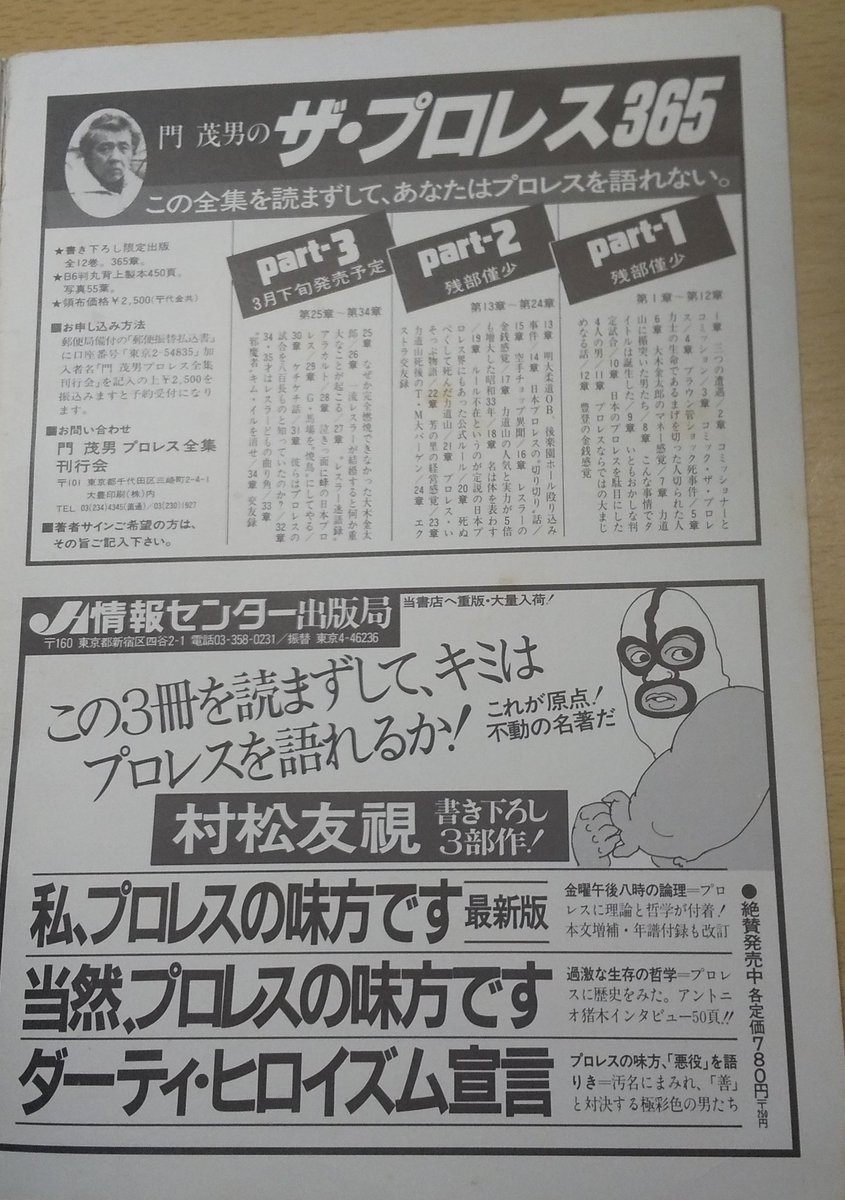 門 茂男の ザ・プロレス365
この全集を読まずして、あなたはプロレスを語れない。
part-1
残部僅少
第1章〜第12章
1章 三つの遭遇/2章 コミッショナーと
コミッション/3章 コミック・ザ・プロレ
ス/4章 ブラウン管ショック死事件/5章
力士の生命であるまげを切った人切られた人
6章 大木金太郎のマネー感覚/7章 力道
山に楯突いた男たち/8章 こんな事情でタ
イトルは誕生した/9章 いともおかしな判
定試合/10章 日本のプロレスを駄目にした
4人の男/11章 プロレスならではの大まじ
めなる話/12章 豊登の金銭感覚
part-2
残部僅少
第13章〜第24章
13章 明大柔道OB、後楽園ホール殴り込み
事件/14章 日本プロレスの"切り切り"話/
15章 空手チョップ異聞/16章 レスラーの
金銭感覚/17章 力道山の人気と実力が5倍
も増大した昭和33年/18章 名は体を表わす
/19章 ルール不在というのが定説の日本プ
ロレス界にもあった公式ルール/20章 死ぬ
べくして死んだ力道山/21章 プロレス・い
そっぷ物語/22章 芳の里の経営感覚/23章
力道山死後のT・M大バーゲン/24章 エク
ストラ交友録
part-3
3月下旬発売予定
第25章〜第34章
25章 なぜか完全燃焼できなかった大木金太
郎/26章 一流レスラーが結婚すると何か重
大なことが起こる/27章 "レスラー迷語録"
アラカルト/28章 泣きっ面に蜂の日本プロ
レス/29章 G・馬場を"焼鳥"にしてやる/
30章 ケチケチ話/31章 彼らはプロレスの
試合を八百長ものと知っていたのか?/32章
34・35才はレスラーどもの曲り角/33章
"邪魔者"キム・イルを消せ/34章 交友録
★書き下ろし限定出版
全12巻。365章。
★B6判丸背上製本450頁。
写真55葉。
★領布価格¥2,500(〒代金共)
■お申し込み方法
郵便局備付の「郵便振替払込書」
に口座番号「東京2-54835」加
入者名「門 茂男プロレス全集
刊行会」を記入の上¥2,500を
振込みますと予約受付になり
ます。
■お問い合わせ
門 茂男 プロレス全集
刊行会
〒101 東京都千代田区三崎町2-4-1
大豊印刷(株)内
TEL 03(234)4345(直通)/03(230)1927
■著者サインご希望の方は、
その旨ご記入下さい。
JA情報センター出版局
〒160 東京都新宿区四谷2-1 電話03-358-0231/振替 東京4-46236
当書店へ重版・大量入荷!
この3冊を読まずして、キミは
プロレスを語れるか!
これが原点!
不動の名著だ
村松友視 書き下ろし
3部作!
私、プロレスの味方です 最新版
金曜午後八時の論理=プロ
レスに理論と哲学が付着!
本文増補・年譜付録も改訂
当然、プロレスの味方です
過激な生存の哲学=プロレ
スに歴史をみた。アントニ
オ猪木インタビュー50頁!!
ダーティ・ヒロイズム宣言
プロレスの味方、「悪役」を語
りき=汚名にまみれ、「善」
と対決する極彩色の男たち
●絶賛発売中 各定価780円〒250円